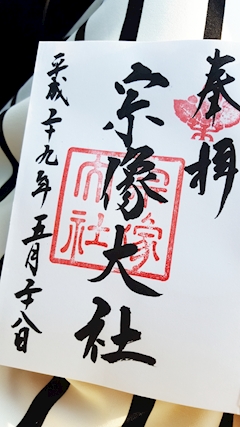 奉拝
宗像大社
平成二十九年五月二十八日
宗像
大社